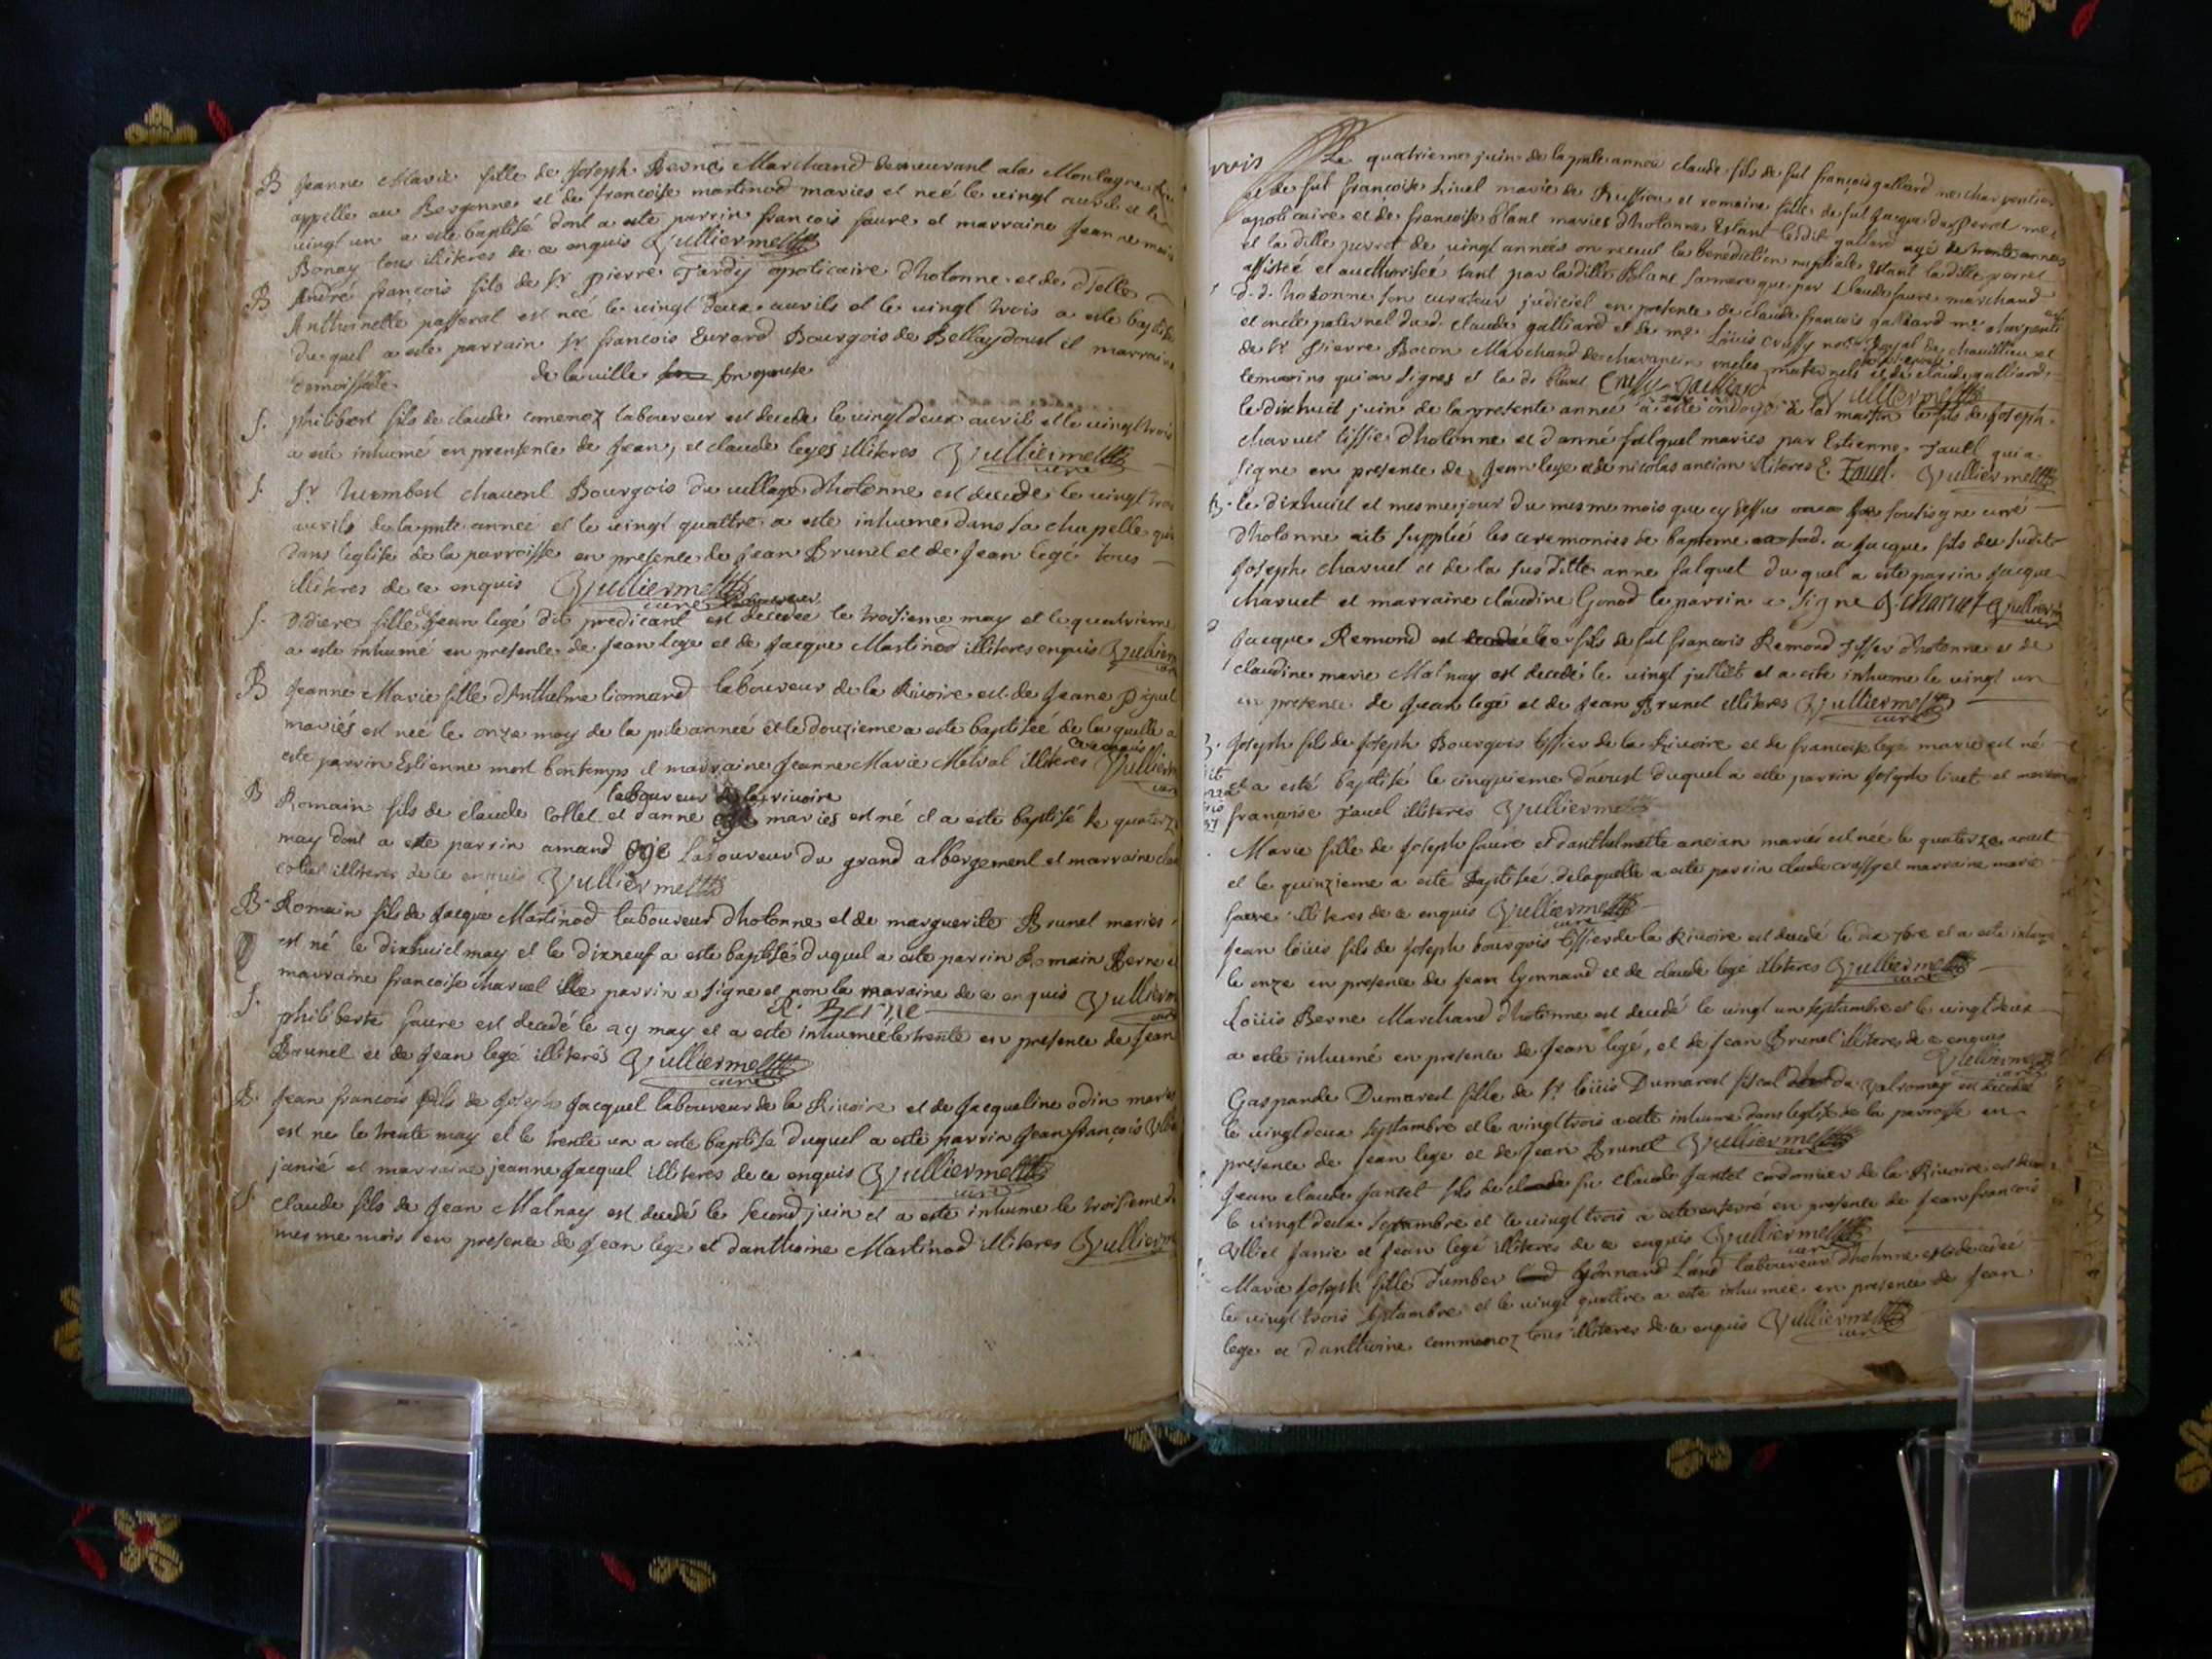 B Jeanne Marie fille de Joseph Berne Marchand demeurant a la Montagne
appelle au Bergonne et de francoise martinod maries et neé le vingt avril et le
vingt un a esté baptisé dont a este parrin francois faure et marraine Jeanne marie
Bonay tous illiteres de ce enquis Vulliermet
B André françois fils de Sr pierre Tardy apoticaire dhotonne et de dselle
Anthoinette passerat est neé le vingt deux avrils et le vingt trois a este baptisé
du quel a este parrain Sr francois Evrard Bourgois de et marraine
demoiselle
de la ville son epouse
S. philibert fils de claude comenoz laboureur est decede le vingt deux avril et le vingt trois
a esté inhumé en prensence de Jean, et claude leges illiteres Vulliermet
curé
S. Sr humbert chavent Bourgois du village dhotonne est decede le vingt trois
avrils de la pnte année et le vingt quattre a este inhume dans sa chapelle qui
dans leglise de la parroisse en presence de Jean Brunet et de Jean legé tous
illiteres de ce enquis Vulliermet
curé laboureur
S. Didiere fille de Jean legé dit predicant est decedée le troisieme may et le quatrieme
a este inhumé en presence de Jean lege et de Jacque Martinod illiteres enquis Vullierm
B Jeanne Marie fille dAnthelme liomard laboureur de la Rivoire et de Jeane
mariés est neé le onze may de la pnte anneé et le douzieme a este baptiseé de la quelle a
ce enquis
este parrin Estienne mort bontemps et marraine Jeanne Marie illiteres Vullierm
laboureur de la rivoire
B Romain fils de claude Collet et danne maries est né et a este baptisé le quatorze
may dont a este parrin amand laboureur du grand albergement et marraine
collet illiteres de ce enquis Vulliermet
B. Romain fils de Jacque Martinod laboureur dhotonne et de marguerite Brunet maries
est né le dixhuict may et le dixneuf a este baptisé duquel a este parrin Romain Berne et
marraine francoise charvet le parrin a signe et non la maraine de ce enquis Vullierm
R. Berne
S. philiberte faure est decedé le 29 may et a este inhumeé le trente en presence de Jean
Brunet et de Jean legé illiterés Vulliermet
curé
B. Jean francois fils de Joseph Jacquet laboureur de la Rivoire et de Jacqueline odin maries
est ne le trente may et le trente un a este baptise duquel a este parrin Jean françois
janié et marraine jeanne Jacquet illiteres de ce enquis Vulliermet
curé
S. Claude fils de Jean Malnay est decedé le second juin et a este inhume le troisieme d
mesme mois en presence de Jean lege et danthoine Martinod illiteres Vullierm
Le quatrieme juin de la pnte anneé claude fils de fut françois galliard me charpentier
et de fut francoise Livet maries de Ruffieu et romaine fille de fut Jacque perret me
apoticaire et de francoise blanc maries dhotonne Estant ledit galliard agé de trente anneés
et la ditte perret de vingt anneés on receut la benediction nuptiale Estant la ditte perret
assisteé et authoriseé tant par la ditte Blanc sa mere que par Claude faure marchand
d. d. hotonne son curateur judiciel en presence de claude francois galliard me charpentier
et oncle paternel dud. claude galliard et de me Loüis crussy nottaire Royal de chavillieu et
de Sr Pierre Bocon Marchand de chavanein oncles maternels et de claude galliard,
temoins qui on signes et la d. blanc Crussy galliard Vulliermet
le dixhuict juin de la presente anneé a esté ondoyé a la maison le fils de Joseph
charvet tissie dhotonne et danné falquet maries par Estienne Tavel qui a
signe en presence de Jean lege et de nicolas ancian illiteres E. Tavel. Vulliermet
B. le dixhuict et mesme jour du mesme mois que cy dessus je soussigne curé
dhotonne ait supplié les ceremonies de bapteme a Jacque fils du sudit
Joseph charvet et de la susditte anne falquet du quel a este parrin Jacque
charvet et marraine claudine Gonod le parrin a signe J. charvet Vulliermet
Jacque Remond fils de fut francois Remond tissier dhotonne et de
claudine marie Malnay est decedé le vingt julliet et a este inhume le vingt un
en presence de Jean legé et de Jean Brunet illiteres Vulliermet
curé
Joseph fils de Joseph Bourgois tissier de la Rivoire et de francoise legé maries est né
et a esté baptisé le cinquieme daoust duquel a este parrin Joseph livet et marraine
françoise Tavel illiteres Vulliermet
Marie fille de Joseph faure et danthelmette ancian mariés est née le quatorze aoust
et le quinzieme a este Baptiseé de laquelle a este parrin claude crussy et marraine marie
faure illiteres de ce enquis Vulliermet
curé
Jean loüis fils de Joseph bourgois tissier de la Rivoire est decedé le dix 7bre et a este inhume
le onze en presence de Jean lyonnard et de claude legé illiteres Vulliermet
curé
Loüis Berne Marchand dhotonne est decedé le vingt un septambre et le vingt deux
a este inhumé en presence de Jean legé, et de Jean Brunet illiteres de ce enquis
Vulliermet
curé
Gasparde Dumarest fille de Sr loüis Dumarest fiscal de valromey est decedé
le vingt deux septambre et le vingt trois a este inhume dans leglise de la parroisse en
presence de Jean lege et de Jean Brunet Vulliermet
curé
Jean claude Jantet fils de fu claude Jantet cordonnier de la Rivoire est
le vingt deux septambre et le vingt trois a este enterré en presence de Jean francois
Janie et Jean legé illiterés de ce enquis Vulliermet
curé
Marie Joseph fille dumber lyonnard laboureur dhotonne est decedeé
le vingt trois septambre et le vingt quattre a este inhumee en presence de Jean
lege et danthoine commenoz tous illiteres de ce enquis Vulliermet
curé